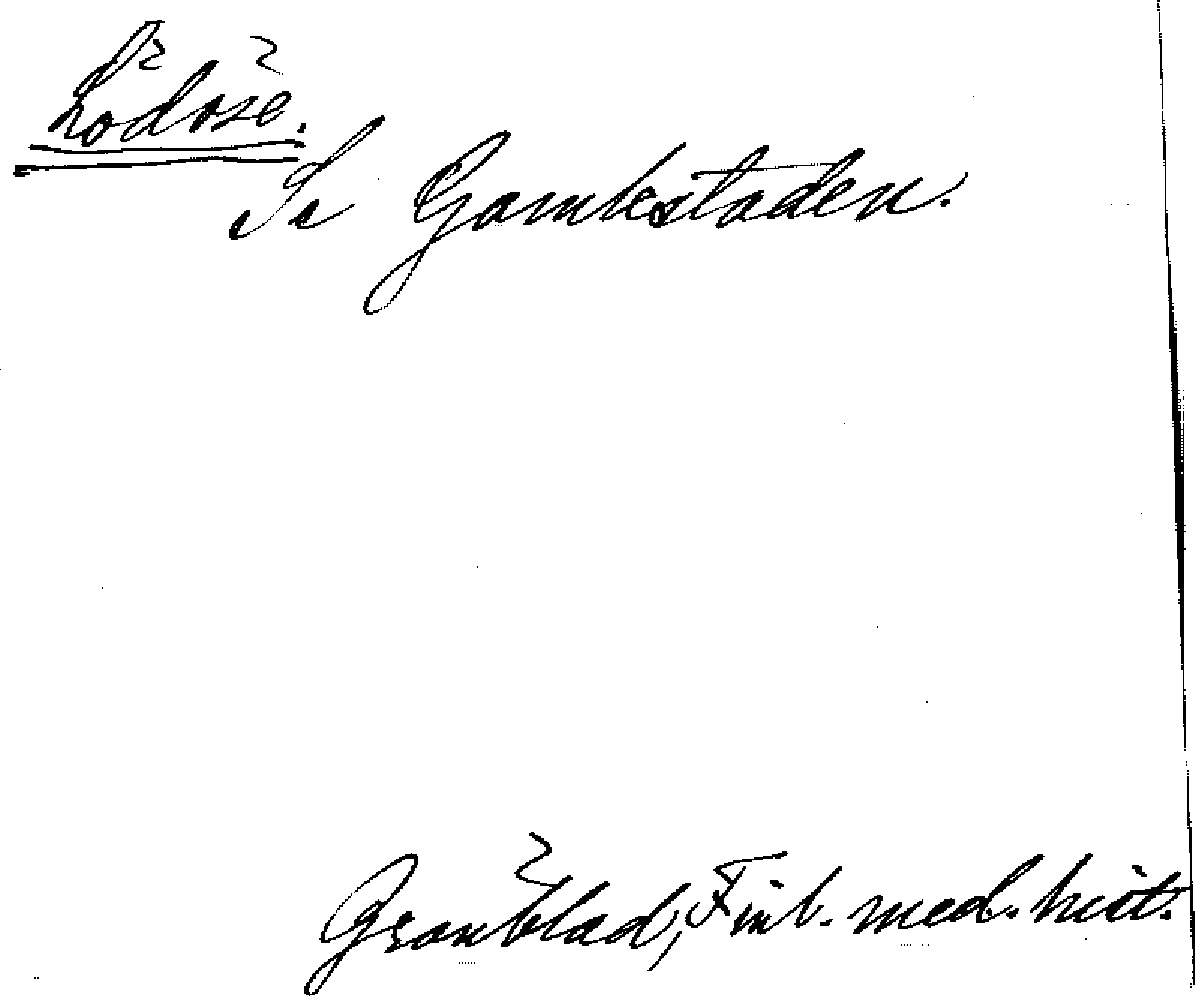 Lödöse.
Se Gamlestaden.
Grönblad, Finl. med. hist.